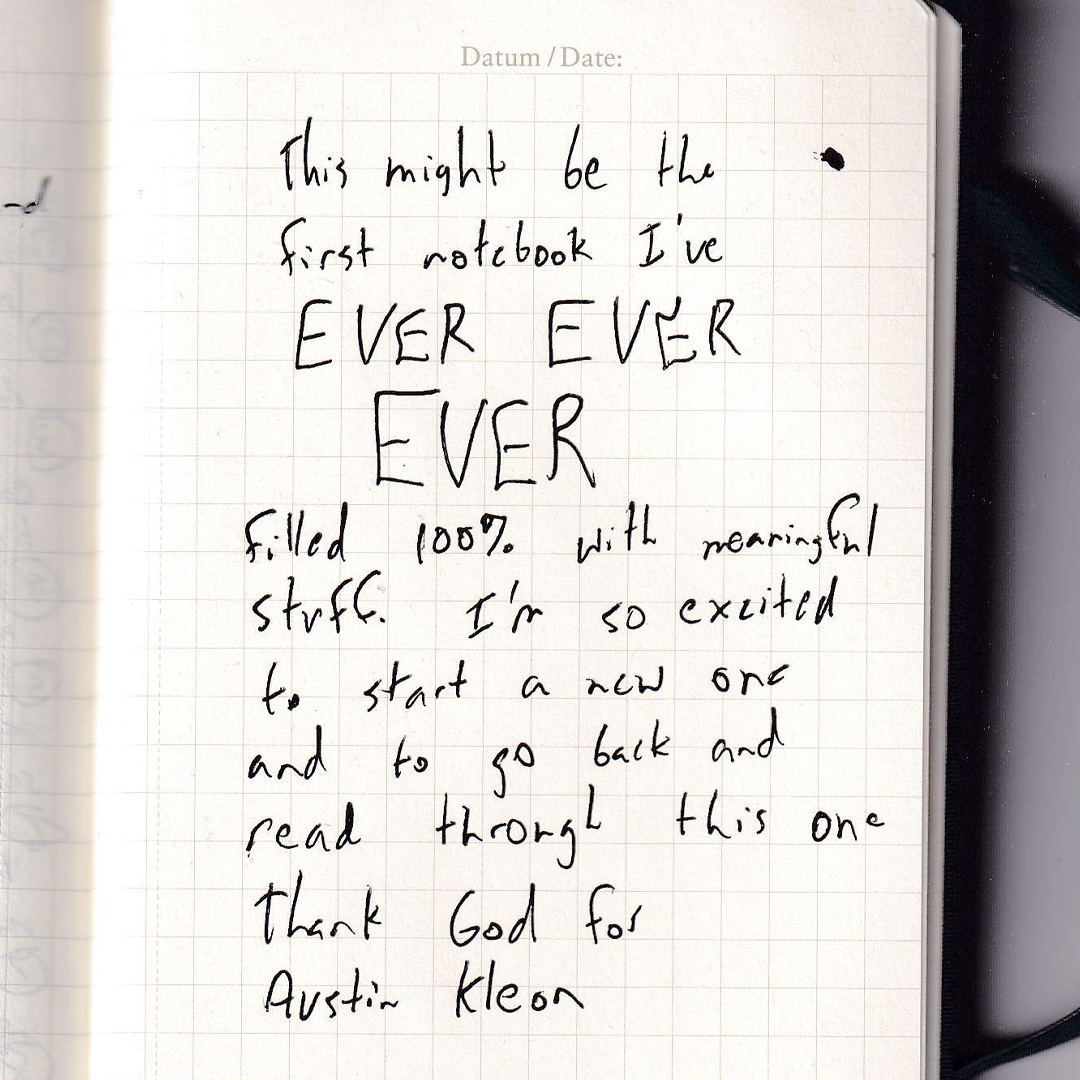 Datum / Date:
This might be the
first notebook I've
EVER EVER
EVER
filled 100% with meaningful
stuff. I'm so excited
to start a new one
and to go back and
read through this one
Thank God for
Austin Kleon